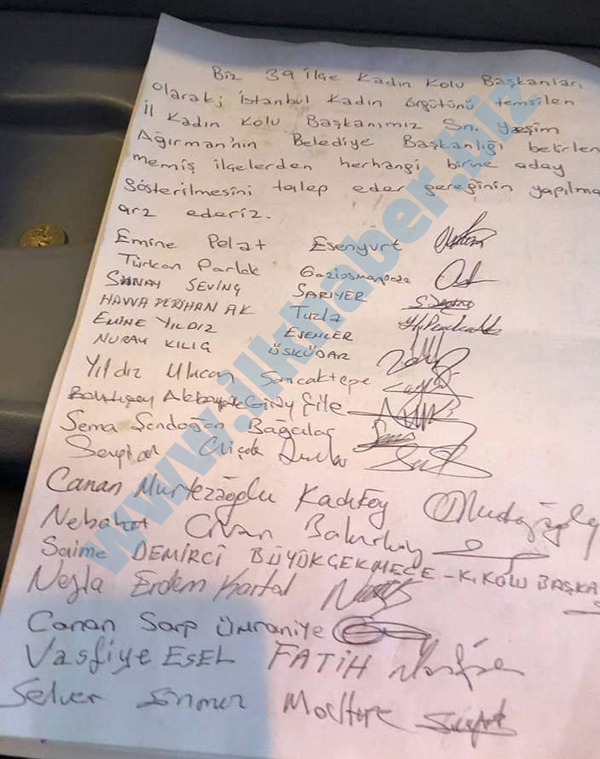 Biz 39 ilçe Kadın Kolu Başkanları
olarak; İstanbul Kadın örgütünü temsilen
İl Kadın Kolu Başkanımız Sn. Yeşim
Ağırman'nın Belediye Başkanlığı belirlen
memiş ilçelerden herhangi birine aday
gösterilmesini talep eder gereğinin yapılma
arz ederiz.
Emine Polat Esenyurt
Türkan Parlak Gaziosmanpaşa
SUNAY SEVİNÇ SARIYER
HAVVA PERİHAN AK Tuzla
EMİNE YILDIZ ESENLER
NURAY KILIÇ ÜSKÜDAR
Yıldız Ulucan Sancaktepe
Şile
Sema Şendoğan Bağcılar
Canan Murtezaoğlu Kadıköy
Nebahat Civan Bakırköy
Saime DEMİRCİ BÜYÜKÇEKMECE - K.KOLU BAŞKA
Neşla Erdem Kartal
Canan Sarp Ümraniye
Vasfiye ESEL FATİH
Selver Maltepe
www.ilkhaber.biz